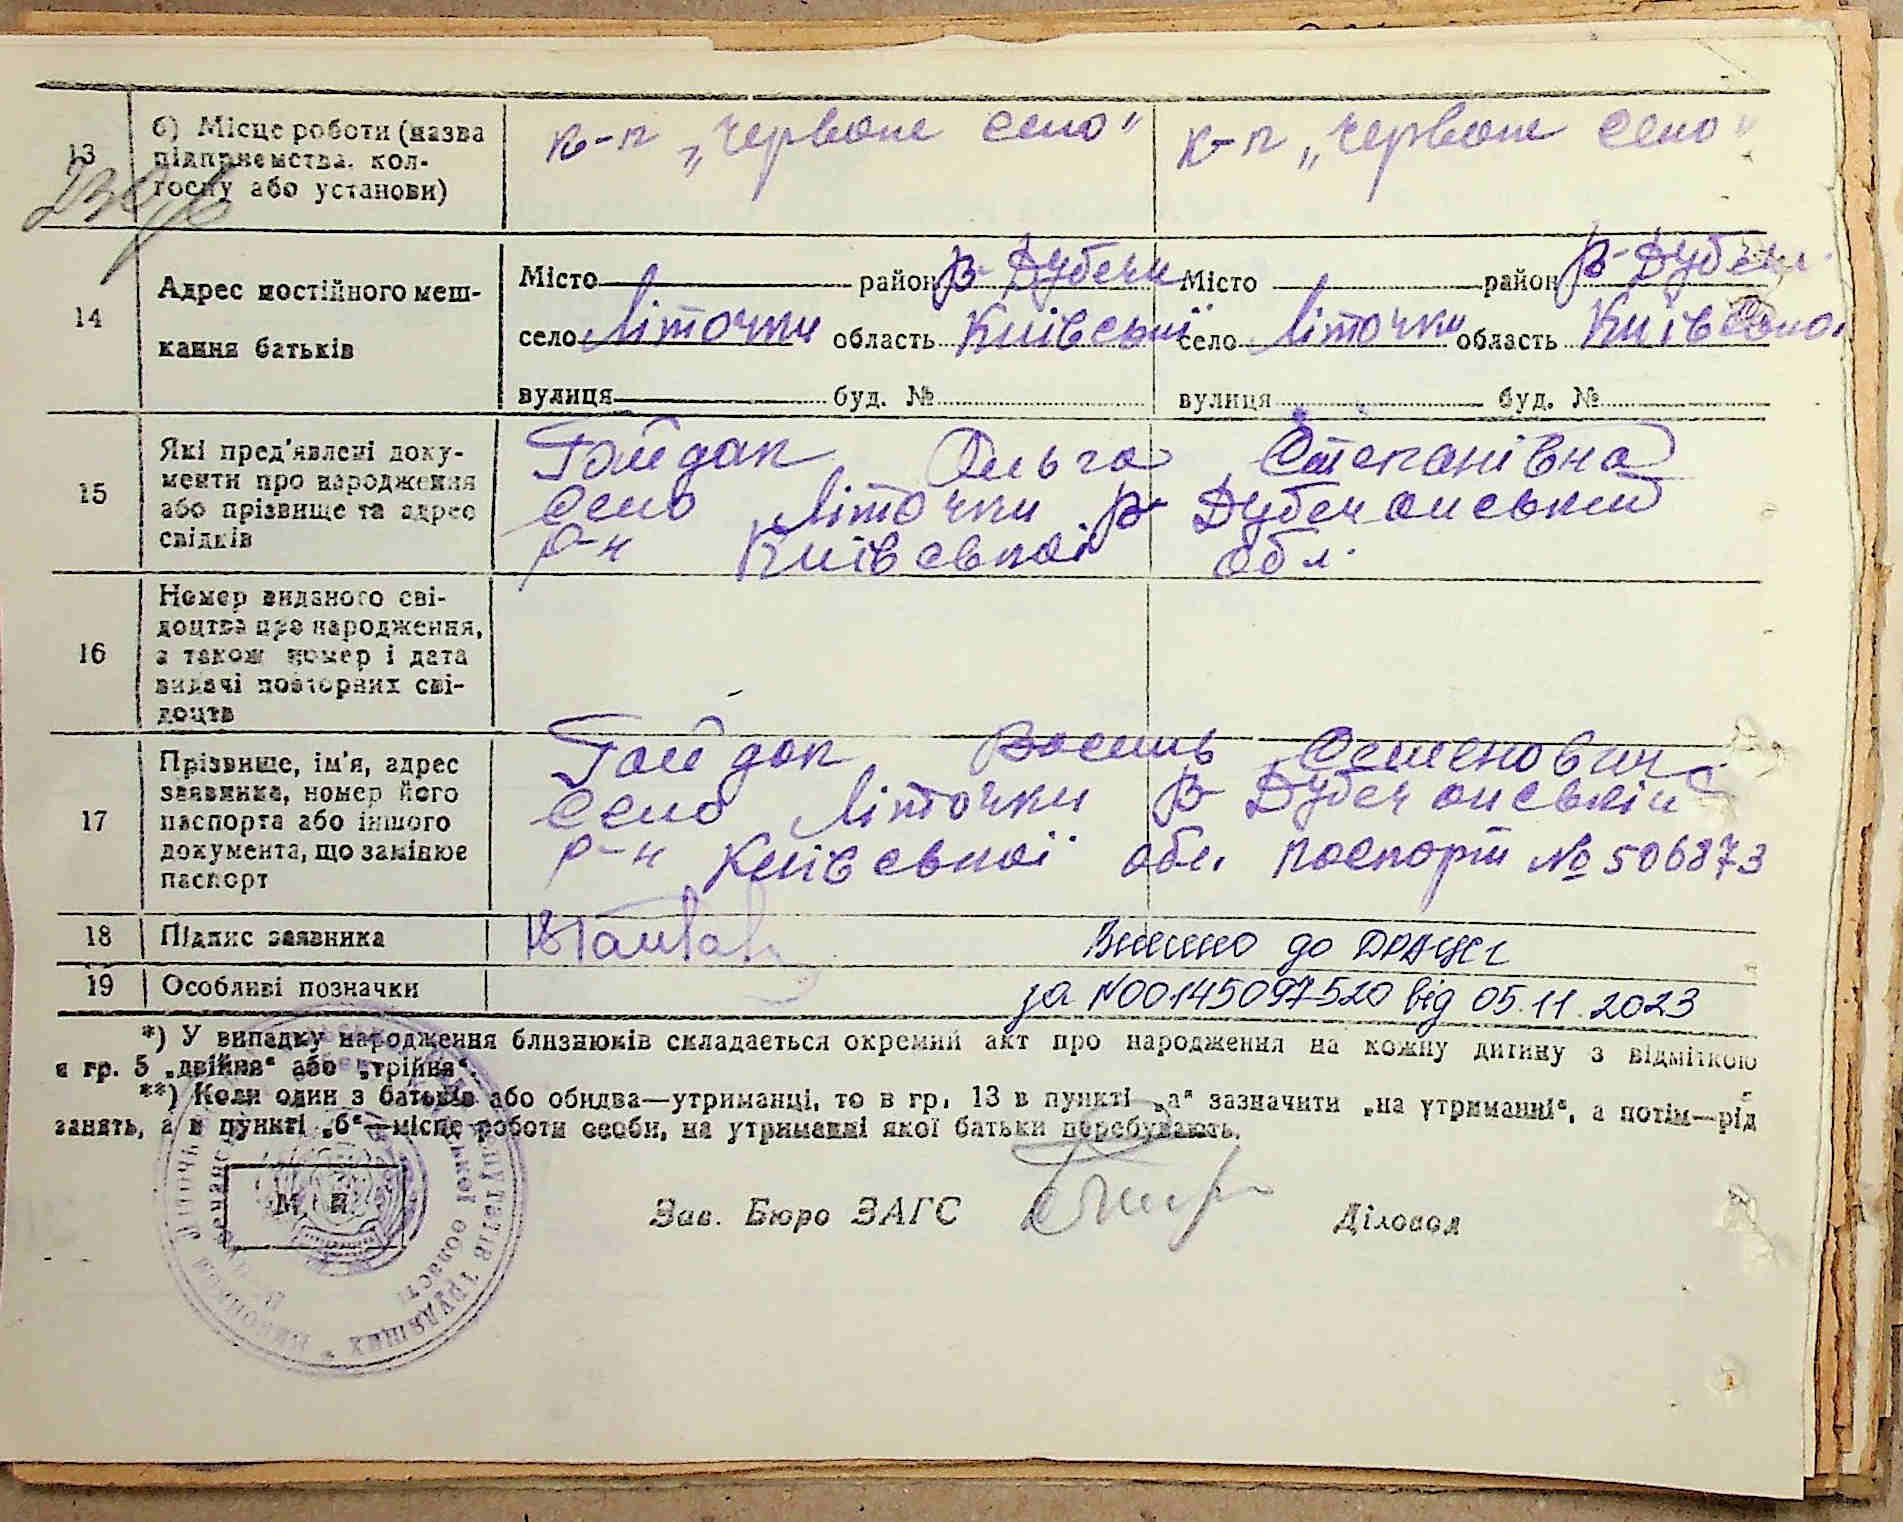 13 б) Місце роботи (назва підприємства, колгоспу або установи)
к-п „Червоне село" к-п „Червоне село"
14 Адрес постійного мешкання батьків
Місто район В-Дубечн Місто район В-Дубечн.
село Літочки область Київської село Літочки область Київської
вулиця буд. № вулиця буд. №
15 Які пред'явлені документи про народження або прізвище та адрес свідків
Гайдак Ольга Степанівна
село Літочки В-Дубечанський
р-н Київської обл.
16 Номер виданого свідоцтва про народження, а також номер і дата видачі повторних свідоцтв
17 Прізвище, ім'я, адрес заявника, номер його паспорта або іншого документа, що замінює паспорт
Гайдак Василь Семенович
село Літочки В-Дубечанській
р-н Київської обл. паспорт № 506873
18 Підпис заявника
Внесено до ДРАЦСг
19 Особливі позначки
за N00145097520 від 05.11.2023
*) У випадку народження близнюків складається окремий акт про народження на кожну дитину з відміткою
в гр. 5 „двійня" або „трійня".
**) Коли один з батьків або обидва—утриманці, то в гр. 13 в пункті „а" зазначити „на утриманні", а потім—рід
занять, а в пункті „б"—місце роботи особи, на утриманні якої батьки перебувають.
М. П.
Зав. Бюро ЗАГС Діловод
депутатів трудящих * Виконком Літочк
області